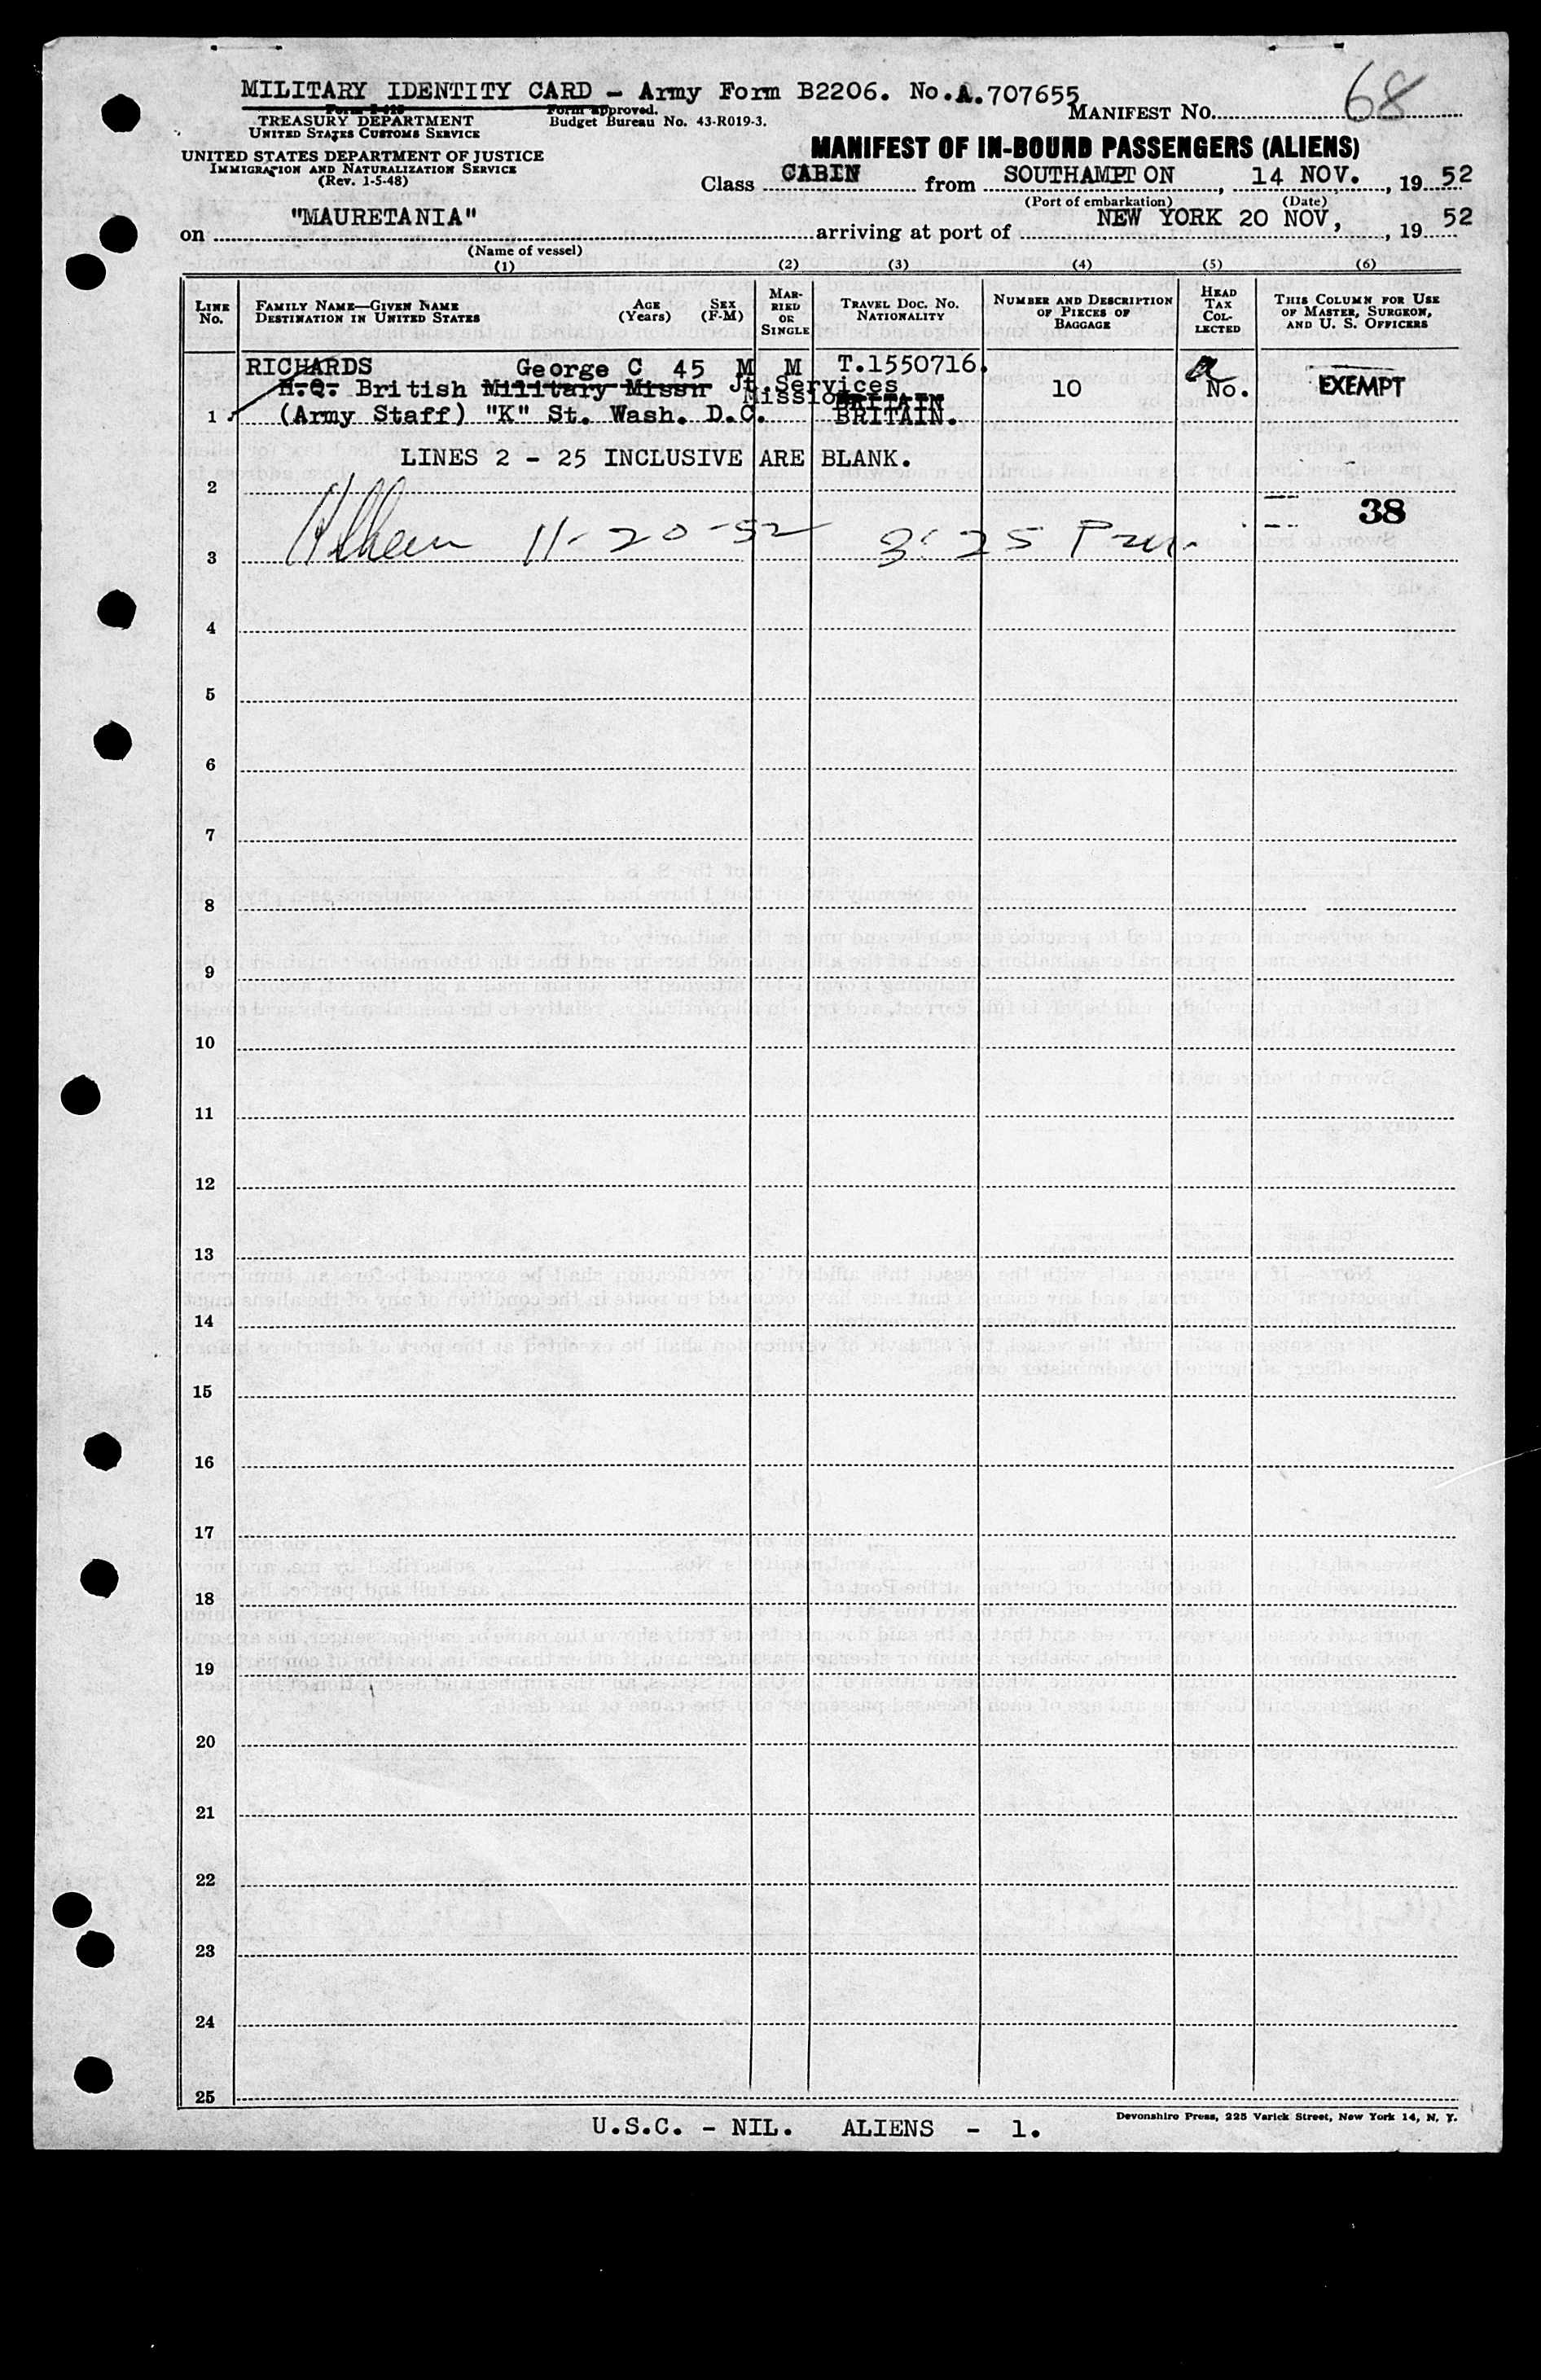 MILITARY IDENTITY CARD - Army Form B2206. No.A.707655
Form approved.
TREASURY DEPARTMENT Budget Bureau No. 43-R019-3. MANIFEST NO. 68
UNITED STATES CUSTOMS SERVICE
MANIFEST OF IN-BOUND PASSENGERS (ALIENS)
UNITED STATES DEPARTMENT OF JUSTICE
IMMIGRATION AND NATURALIZATION SERVICE
(Rev. 1-5-48)
Class CABIN from SOUTHAMPTON, 14 NOV., 1952
(Port of embarkation) (Date)
on "MAURETANIA" arriving at port of NEW YORK 20 NOV, , 1952
(Name of vessel)
(1) (2) (3) (4) (5) (6)
LINE No. FAMILY NAME—GIVEN NAME DESTINATION IN UNITED STATES AGE (Years) SEX (F-M) MARRIED OR SINGLE TRAVEL DOC. NO. NATIONALITY NUMBER AND DESCRIPTION OF PIECES OF BAGGAGE HEAD TAX COLLECTED THIS COLUMN FOR USE OF MASTER, SURGEON, AND U. S. OFFICERS
RICHARDS George C 45 M M T.1550716.
H.Q. British Military Missn Jt.Services Mission BRITAIN 10 No. EXEMPT
1 (Army Staff) "K" St. Wash. D.C. BRITAIN.
LINES 2 - 25 INCLUSIVE ARE BLANK.
2
38
11-20-52 3:25 Pm.
3
4
5
6
7
8
9
10
11
12
13
14
15
16
17
18
19
20
21
22
23
24
25
Devonshire Press, 225 Varick Street, New York 14, N. Y.
U.S.C. - NIL. ALIENS - 1.